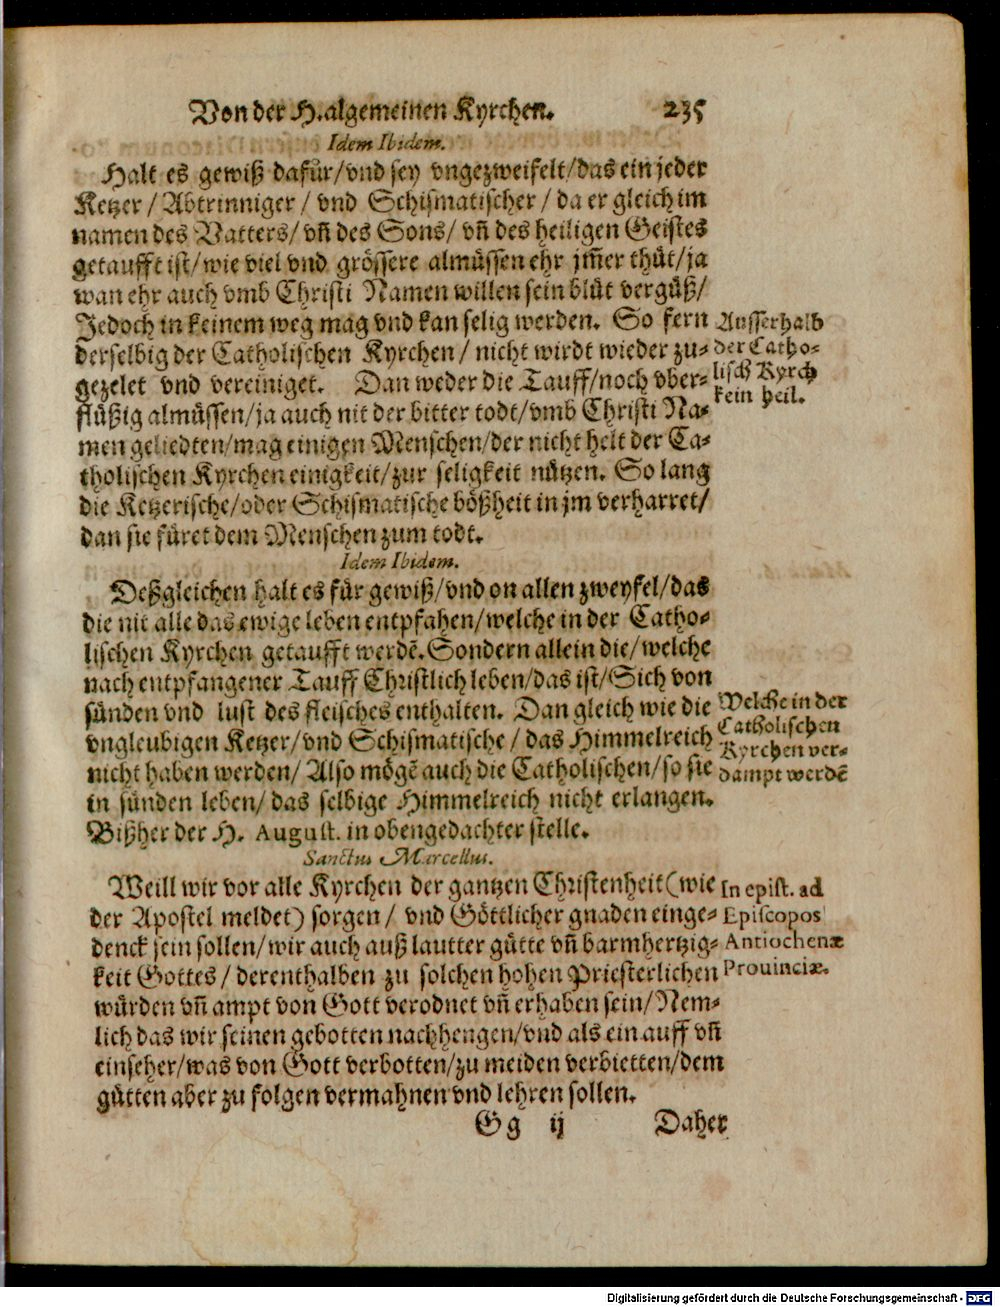 Von der H. algemeinen Kyrchen. 235
Idem Ibidem.
Halt es gewiß dafür/vnd sey vngezweifelt/das ein jeder
Ketzer / Abtrinniger / vnd Schismatischer / da er gleich im
namen des Vatters/ vñ des Sons/ vñ des heiligen Geistes
getaufft ist/wie viel vnd grössere almüssen ehr jm̃er thůt/ja
wan ehr auch vmb Christi Namen willen sein blůt vergüß/
Jedoch in keinem weg mag vnd kan selig werden. So fern
derselbig der Catholischen Kyrchen / nicht wirdt wieder zu-
gezelet vnd vereiniget. Dan weder die Tauff/noch vber-
flüßig almüssen/ja auch nit der bitter todt/vmb Christi Na-
men geliedten/mag einigen Menschen/der nicht helt der Ca-
tholischen Kyrchen einigkeit/zur seligkeit nützen. So lang
die Ketzerische/oder Schismatische bößheit in jm verharret/
dan sie füret dem Menschen zum todt.
Ausserhalb
der Catho-
lisch Kyrch
kein heil.
Idem Ibidem.
Deßgleichen halt es für gewiß/vnd on allen zweyfel/das
die nit alle das ewige leben entpfahen/welche in der Catho-
lischen Kyrchen getaufft werdẽ. Sondern allein die/welche
nach entpfangener Tauff Christlich leben/das ist/Sich von
sünden vnd lust des fleisches enthalten. Dan gleich wie die
vngleubigen Ketzer/vnd Schismatische / das Himmelreich
nicht haben werden/ Also mögẽ auch die Catholischen/so sie
in sünden leben/ das selbige Himmelreich nicht erlangen.
Bißher der H. August. in obengedachter stelle.
Welche in der
Catholischen
Kyrchen ver-
dampt werdẽ
Sanctus Marcellus.
Weill wir vor alle Kyrchen der gantzen Christenheit (wie
der Apostel meldet) sorgen / vnd Göttlicher gnaden einge-
denck sein sollen/wir auch auß lautter gütte vñ barmhertzig-
keit Gottes / derenthalben zu solchen hohen Priesterlichen
würden vñ ampt von Gott verodnet vñ erhaben sein/ Nem-
lich das wir seinen gebotten nachhengen/vnd als ein auff vñ
einseher/was von Gott verbotten/zu meiden verbietten/dem
gütten aber zu folgen vermahnen vnd lehren sollen.
In epist. ad
Episcopos
Antiochenæ
Prouinciæ.
Gg ij Daher
Digitalisierung gefördert durch die Deutsche Forschungsgemeinschaft - DFG